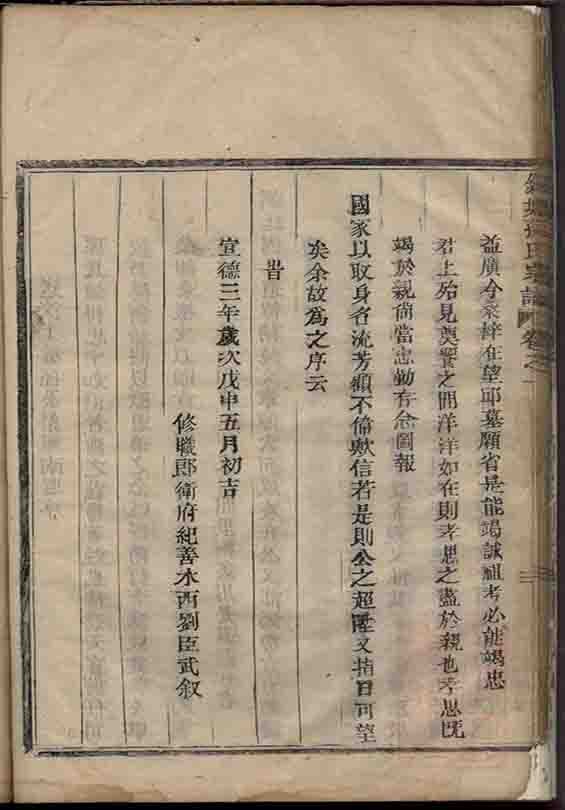 氏宗譜 卷之一
益廣今桑梓在望邱墓願省是能竭誠祖考必能竭忠
君上殆見奠饗之間洋洋如在則孝思之盡於親也孝思既
竭於親尚當忠勤有念圖報
國家以取身名流芳顧不偉歟信若是則公之超陞又指日可望
矣余故為之序云
旹
宣德三年歲次戊申五月初吉
修職郎衛府紀善水西劉臣武叙